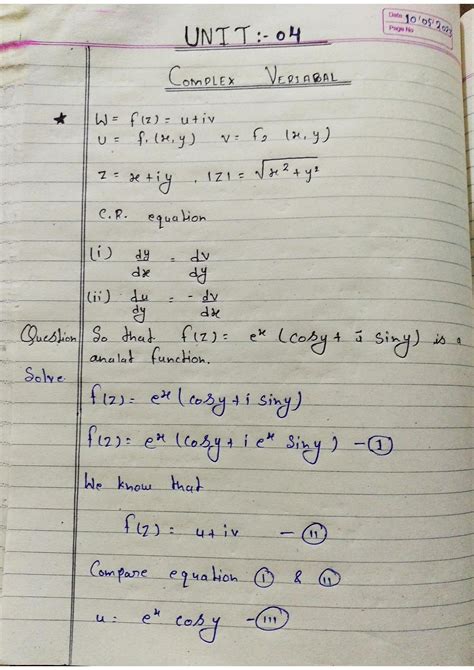 Date 10'05'2023
Page No
UNIT:- 04
COMPLEX VERIABAL
★ W = f(z) = u+iv
u = f₁(x,y) v = f₂ (x,y)
z = x+iy . |z| = √x²+y²
C.R. equation
(i) dy/dx = dv/dy
(ii) du/dy = - dv/dx
Question So that f(z) = eˣ (cosy + i siny) is a
analat function.
Solve
f(z) = eˣ (cosy + i siny)
f(z) = eˣ (cosy + i eˣ siny) - (i)
We know that
f(z) = u+iv - (ii)
Compare equation (i) & (ii)
u = eˣ cosy - (iii)